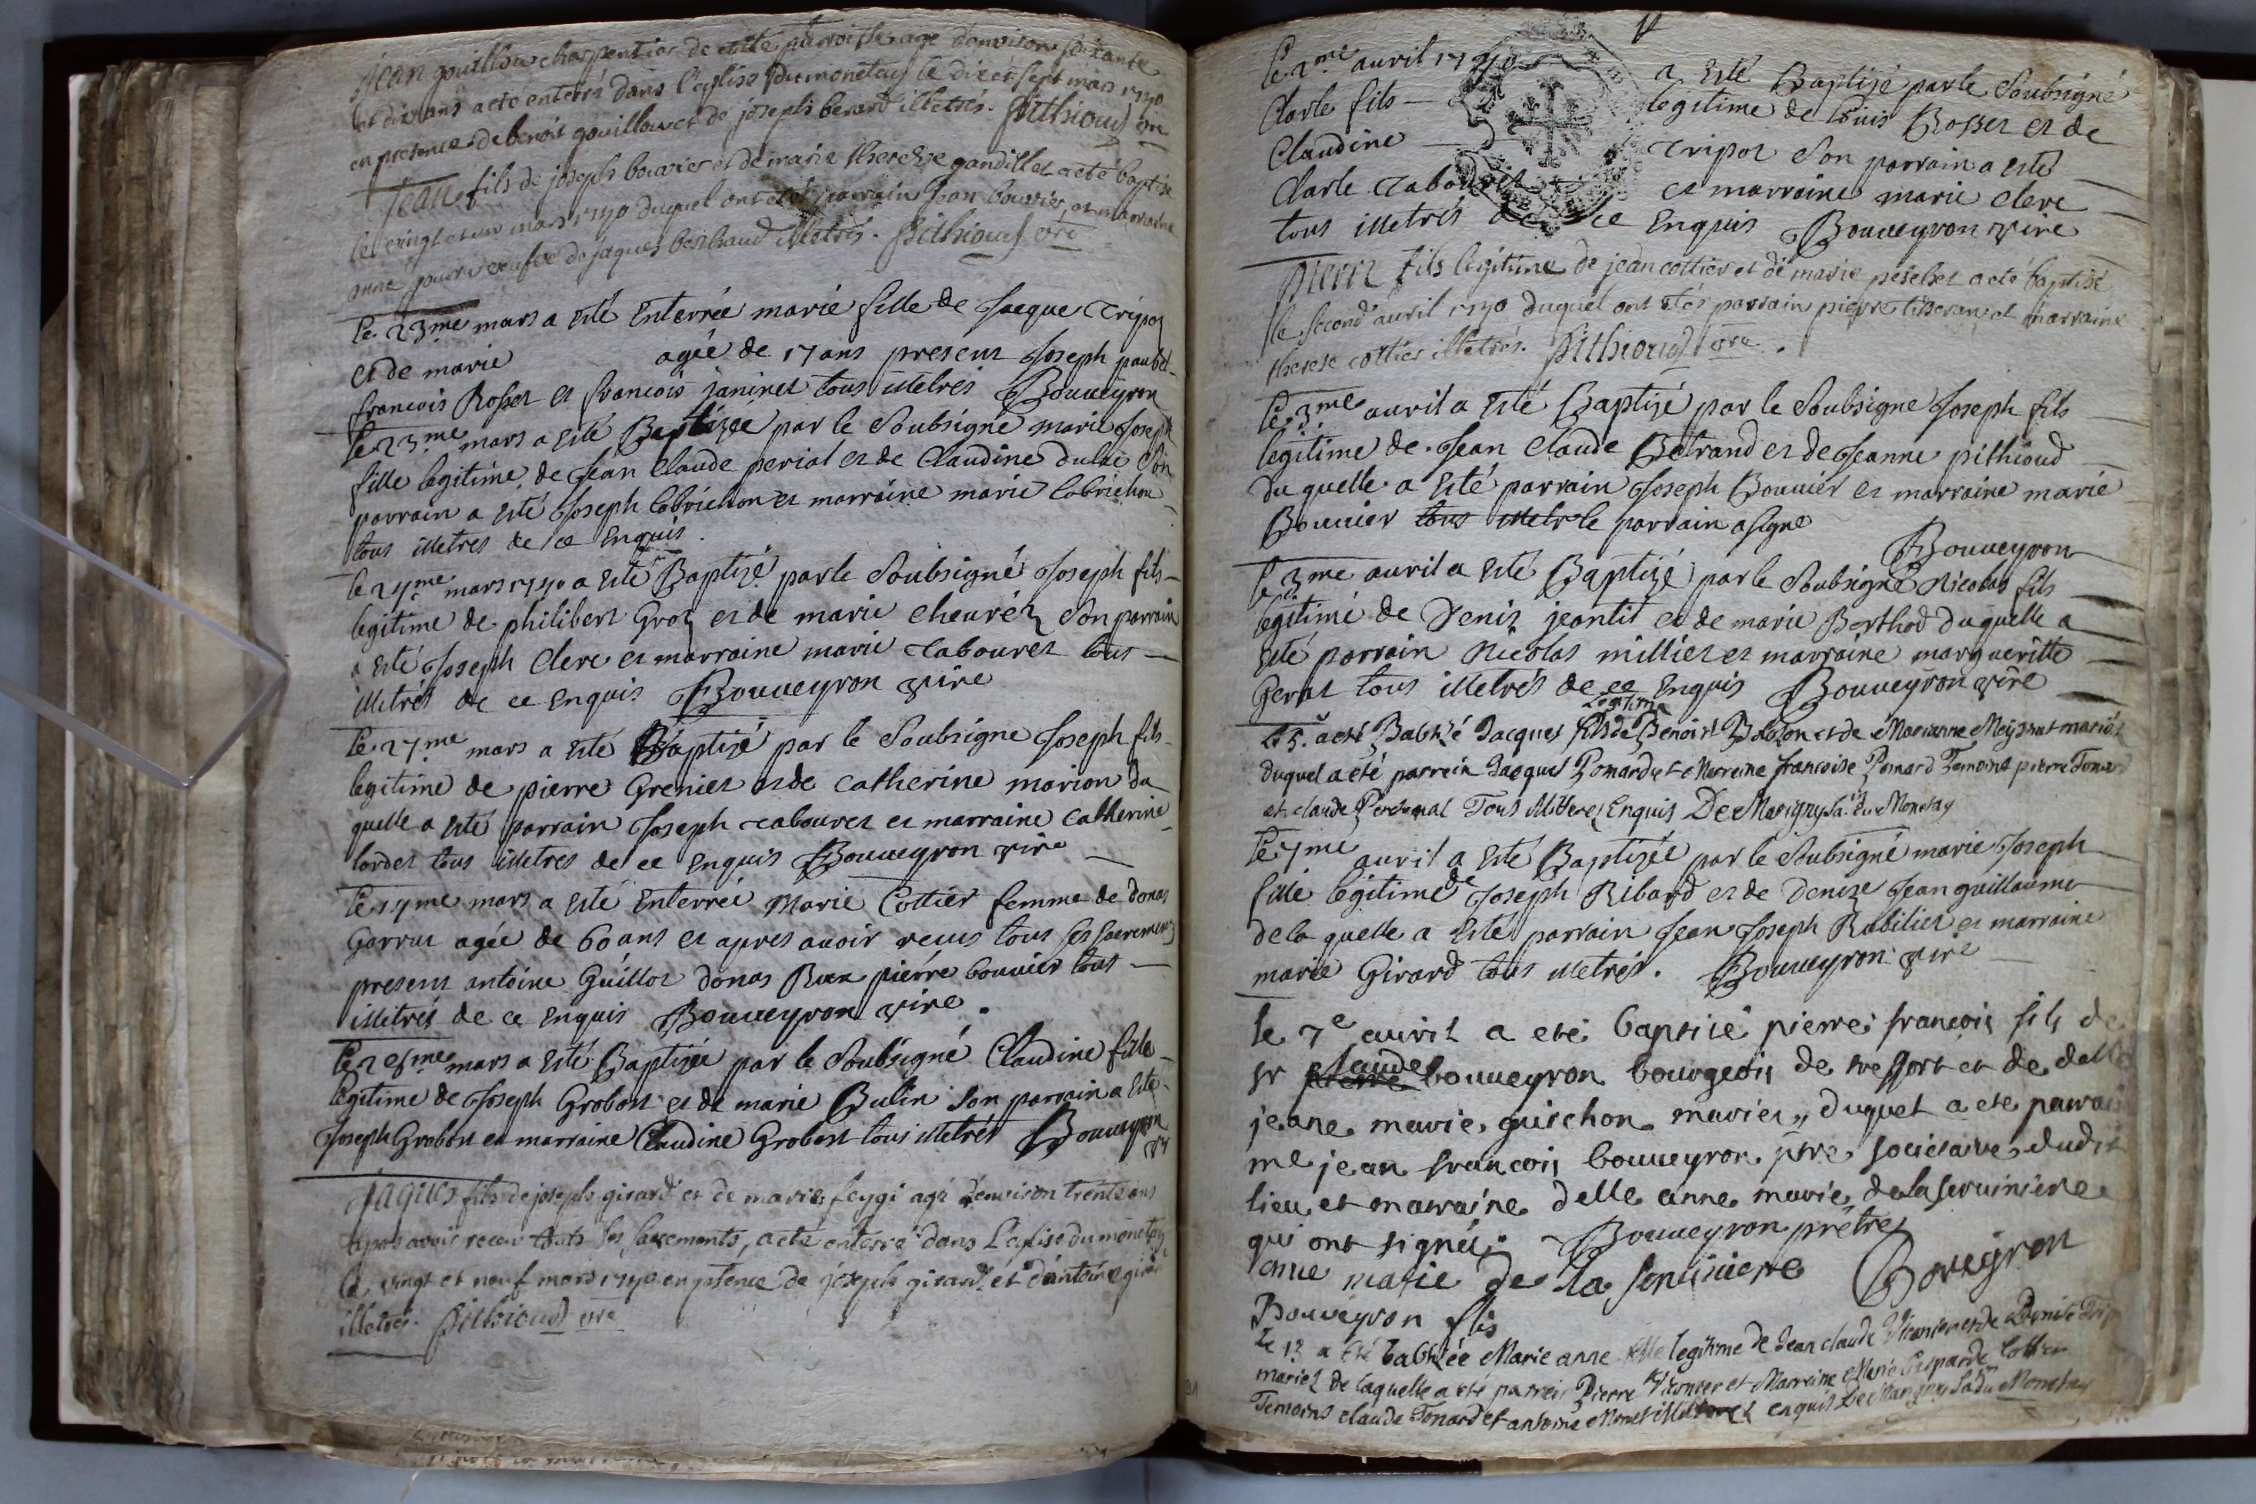 jean gouilloux charpentier de cette parroisse age d'environ soixante
et dix ans a eté enterré dans l'eglise du monetay le dix et sept mars 1740
en presence de benoit gouilloux et de joseph berard illetrés. pithioud vre
jean fils de joseph bouvier et de marie therese gandillet a eté baptisé
le vingt et un mars 1740 duquel ont eté parrain jean bouvier et marraine
anne veufve de jaques berthaud illetrés. pithioud vre
le 23.me mars a esté enterrée marie fille de Jacque Tripoz
et de marie agée de 17 ans present Joseph paubel
francois Rosset et francois janinet tous illetrés Bouveyron
le 23.me mars a esté Baptizée par le Soubsigné marie Joseph
fille legitime de Jean Claude perial et de Claudine dulac Son
parrain a esté Joseph Cobrichon et marraine marie Cobrichon
tous illetres de ce enquis.
le 24.me mars 1740 a esté Baptizé par le Soubsigné Joseph fils
legitime de philibert Groz et de marie chevréz Son parrain
a esté Joseph Clerc et marraine marie Tabouret tous
illetrés de ce enquis Bouveyron vire
le 27.me mars a esté Baptizé par le Soubsigne Joseph fils
legitime de pierre Grenier et de catherine morion du
quelle a esté parrain Joseph Tabouret et marraine catherine
cordet tous illetres de ce enquis Bouveyron vire
le 27me mars a esté enterrée Marie Cottier femme de donas
Garrut agée de 60 ans et apres avoir receus tous ses sacremens
present antoine Guillot donas Rux pierre bouvier tous
illetrés de ce enquis Bouveyron vire.
le 28.me mars a esté Baptizée par le Soubsigné Claudine fille
legitime de Joseph Grobost et de marie Bulin Son parrain a esté
Joseph Grobost et marraine Claudine Grobost tous illetrés Bouveyron
vr
jaques fils de joseph girard et de marie feygi agé d'environ trente ans
apres avoir receu touts ses sacrements, a eté enterré dans L'eglise du monetay
le vingt et neuf mars 1740 en pntence de joseph girard et d'antoine girard
illetrés. pithioud vre
le 2.me avril 1740 a esté Baptizé par le Soubsigné
Clarle fils legitime de Louis Rosset et de
Claudine Tripoz Son parrain a esté
Clarle Tabouret et marraine marie clerc
tous illetrés de ce enquis Bouveyron vire
pierre fils legitime de jean cottier et de marie peschet a eté baptisé
le second avril 1740 duquel ont etés parrain pierre tisseran et marraine
therese cottier illetrés. pithioud vre.
le 3.me avril a esté Baptizé par le Soubsigne Joseph fils
legitime de Jean Claude Betrand et de Jeanne pithioud
du quelle a esté parrain Joseph Bouvier et marraine marie
Bouvier tous illetr le parrain a signé
Bouveyron
le 3.me avril a esté Baptizé par le Soubsigné Nicolas fils
legitime de Deniz jeantit et de marie Berthod du quelle a
esté parrain Nicolas millier et marraine margueritte
Gerat tous illetrés de ce enquis Bouveyron vire
legitime
le 5. a eté Babtizé Jacques fils de Benoist Bolozon et de Marianne Meyssat mariés
duquel a été parrein Jacques Ponard et Marreine francoise Ponard Temoins pierre Tonard
et claude Perdonal Tous illitteres Enquis De Marigny sa. du Monetay
le 7me avril a esté Baptizée par le Soubsigné marie Joseph
fille legitime de Joseph Ribard et de Denize Jean guillaume
de la quelle a esté parrain Jean Joseph Rubilier et marraine
marie Girard tous illetrés. Bouveyron vire
le 7e avril a eté baptisé pierre francois fils de
claude
sr pierre bouveyron bourgeois de treffort et de delle
jeane marie guichon mariez, duquel a eté parrai
me jean francois bouveyron ptre societaire dudit
lieu et maraine delle anne marie de la servinière
qui ont signéz. Bouveyron prêtre
anne marie de la servinière Boveyron
Bouveyron fils
le 12 a été babtisée Marie anne fille legitime de Jean claude Vicornier et de Denise Trip
mariez de laquelle a été parrein Pierre Vicornier et Marreine Marie Gasparde Cottier
Temoins claude Tonard et antoine Monet illitterez enquis De Marigny sa du Monetay